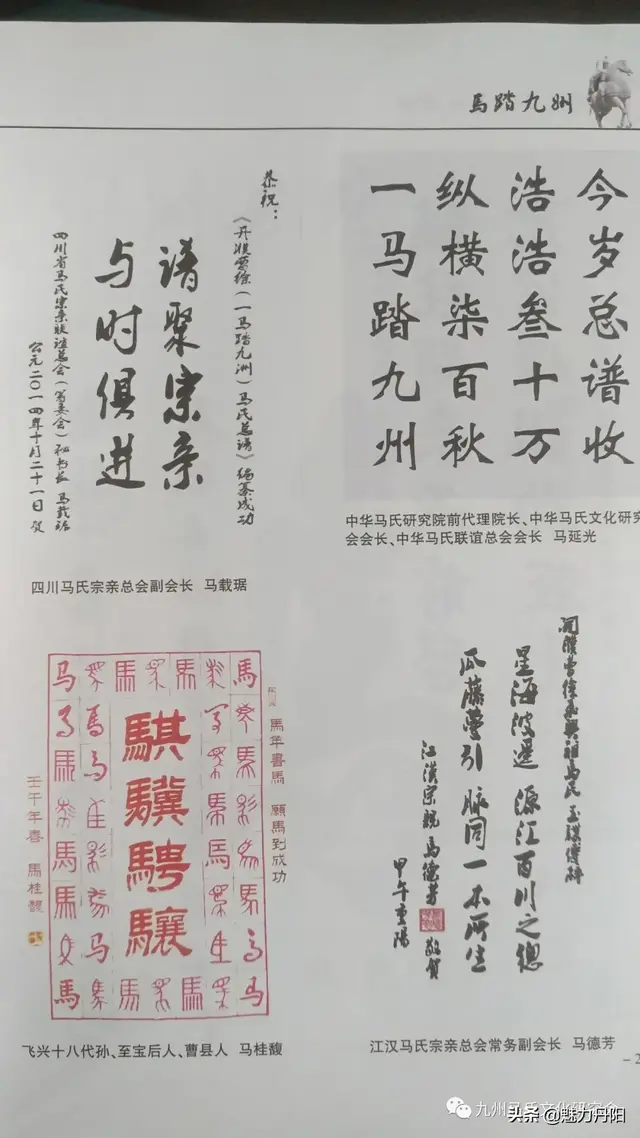 马踏九州
今岁总谱收
浩浩叁十万
纵横柒百秋
一马踏九州
中华马氏研究院前代理院长、中华马氏文化研究
会会长、中华马氏联谊总会会长 马延光
恭祝：
《丹濮曹徐(一马踏九洲)马氏总谱》编纂成功
谱聚宗亲
与时俱进
四川省马氏宗亲联谊总会(筹委会)秘书长 马载琚
公元二〇一四年十月二十一日 贺
四川马氏宗亲总会副会长 马载琚
馬年書馬 願馬到成功
騏驥騁驤
壬午年喜 馬桂馥
飞兴十八代孙、至宝后人、曹县人 马桂馥
星海波邊 源江百川之總
瓜藤學引 脉同一本所生
江漢宗親 馬德芳 敬賀
甲午重陽
江汉马氏宗亲总会常务副会长 马德芳
九州马氏文化研究会
头条@魅力丹阳